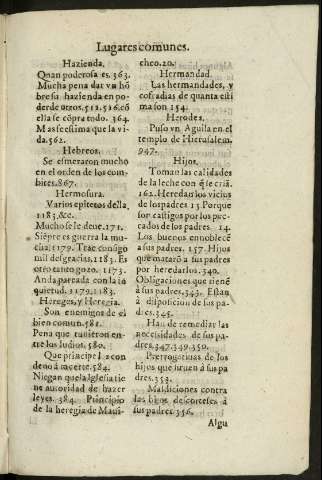 Lugares comunes.
Hazienda.
Quan poderosa es. 363.
Mucha pena dar vn hõ
bre su hazienda en po-
der de otros. 512. 516. cõ
ella se cõpra todo. 364.
Mas se estima que la vi-
da. 562.
Hebreos.
Se esmeraron mucho
en el orden de los com-
bites. 867.
Hermosura.
Varios epitetos della.
1183. &c.
Mucho se le deue. 171.
Siẽpre es guerra la mu-
cha. 1179. Trae consigo
mil desgracias. 1183. Es
otro tanto gozo. 1173.
Anda pareada con la in
quietud. 1179. 1183.
Hereges, y Heregia.
Son enemigos de el
bien comun. 581.
Pena que tuuieron en-
tre los Iudios. 580.
Que principe las con
denò a muerte. 584.
Niegan que la Iglesia tie
ne autoridad de hazer
leyes. 384. Principio
de la heregia de Mani-
cheo. 20.
Hermandad.
Las hermandades, y
cofradias de quanta esti
ma son 154.
Herodes.
Puso vn Aguila en el
templo de Hierusalem.
947.
Hijos.
Toman las calidades
de la leche con q̃ se criã.
162. Heredan los vicios
de los padres 13. Porque
son castigos por los pec-
cados de los padres. 14.
Los buenos ennoblecẽ
a sus padres. 157. Hijos
que matarõ a sus padres
por heredarlos. 340.
Obligaciones que tienẽ
a sus padres. 343. Estan
à disposicion de los pa-
dres. 345.
Han de remediar las
necessidades de sus pa-
dres. 347. 349. 350.
Prerrogatiuas de los
hijos que siruen à sus pa
dres. 353.
Maldiciones contra
los hijos descorteses à
sus padres. 356.
Algu